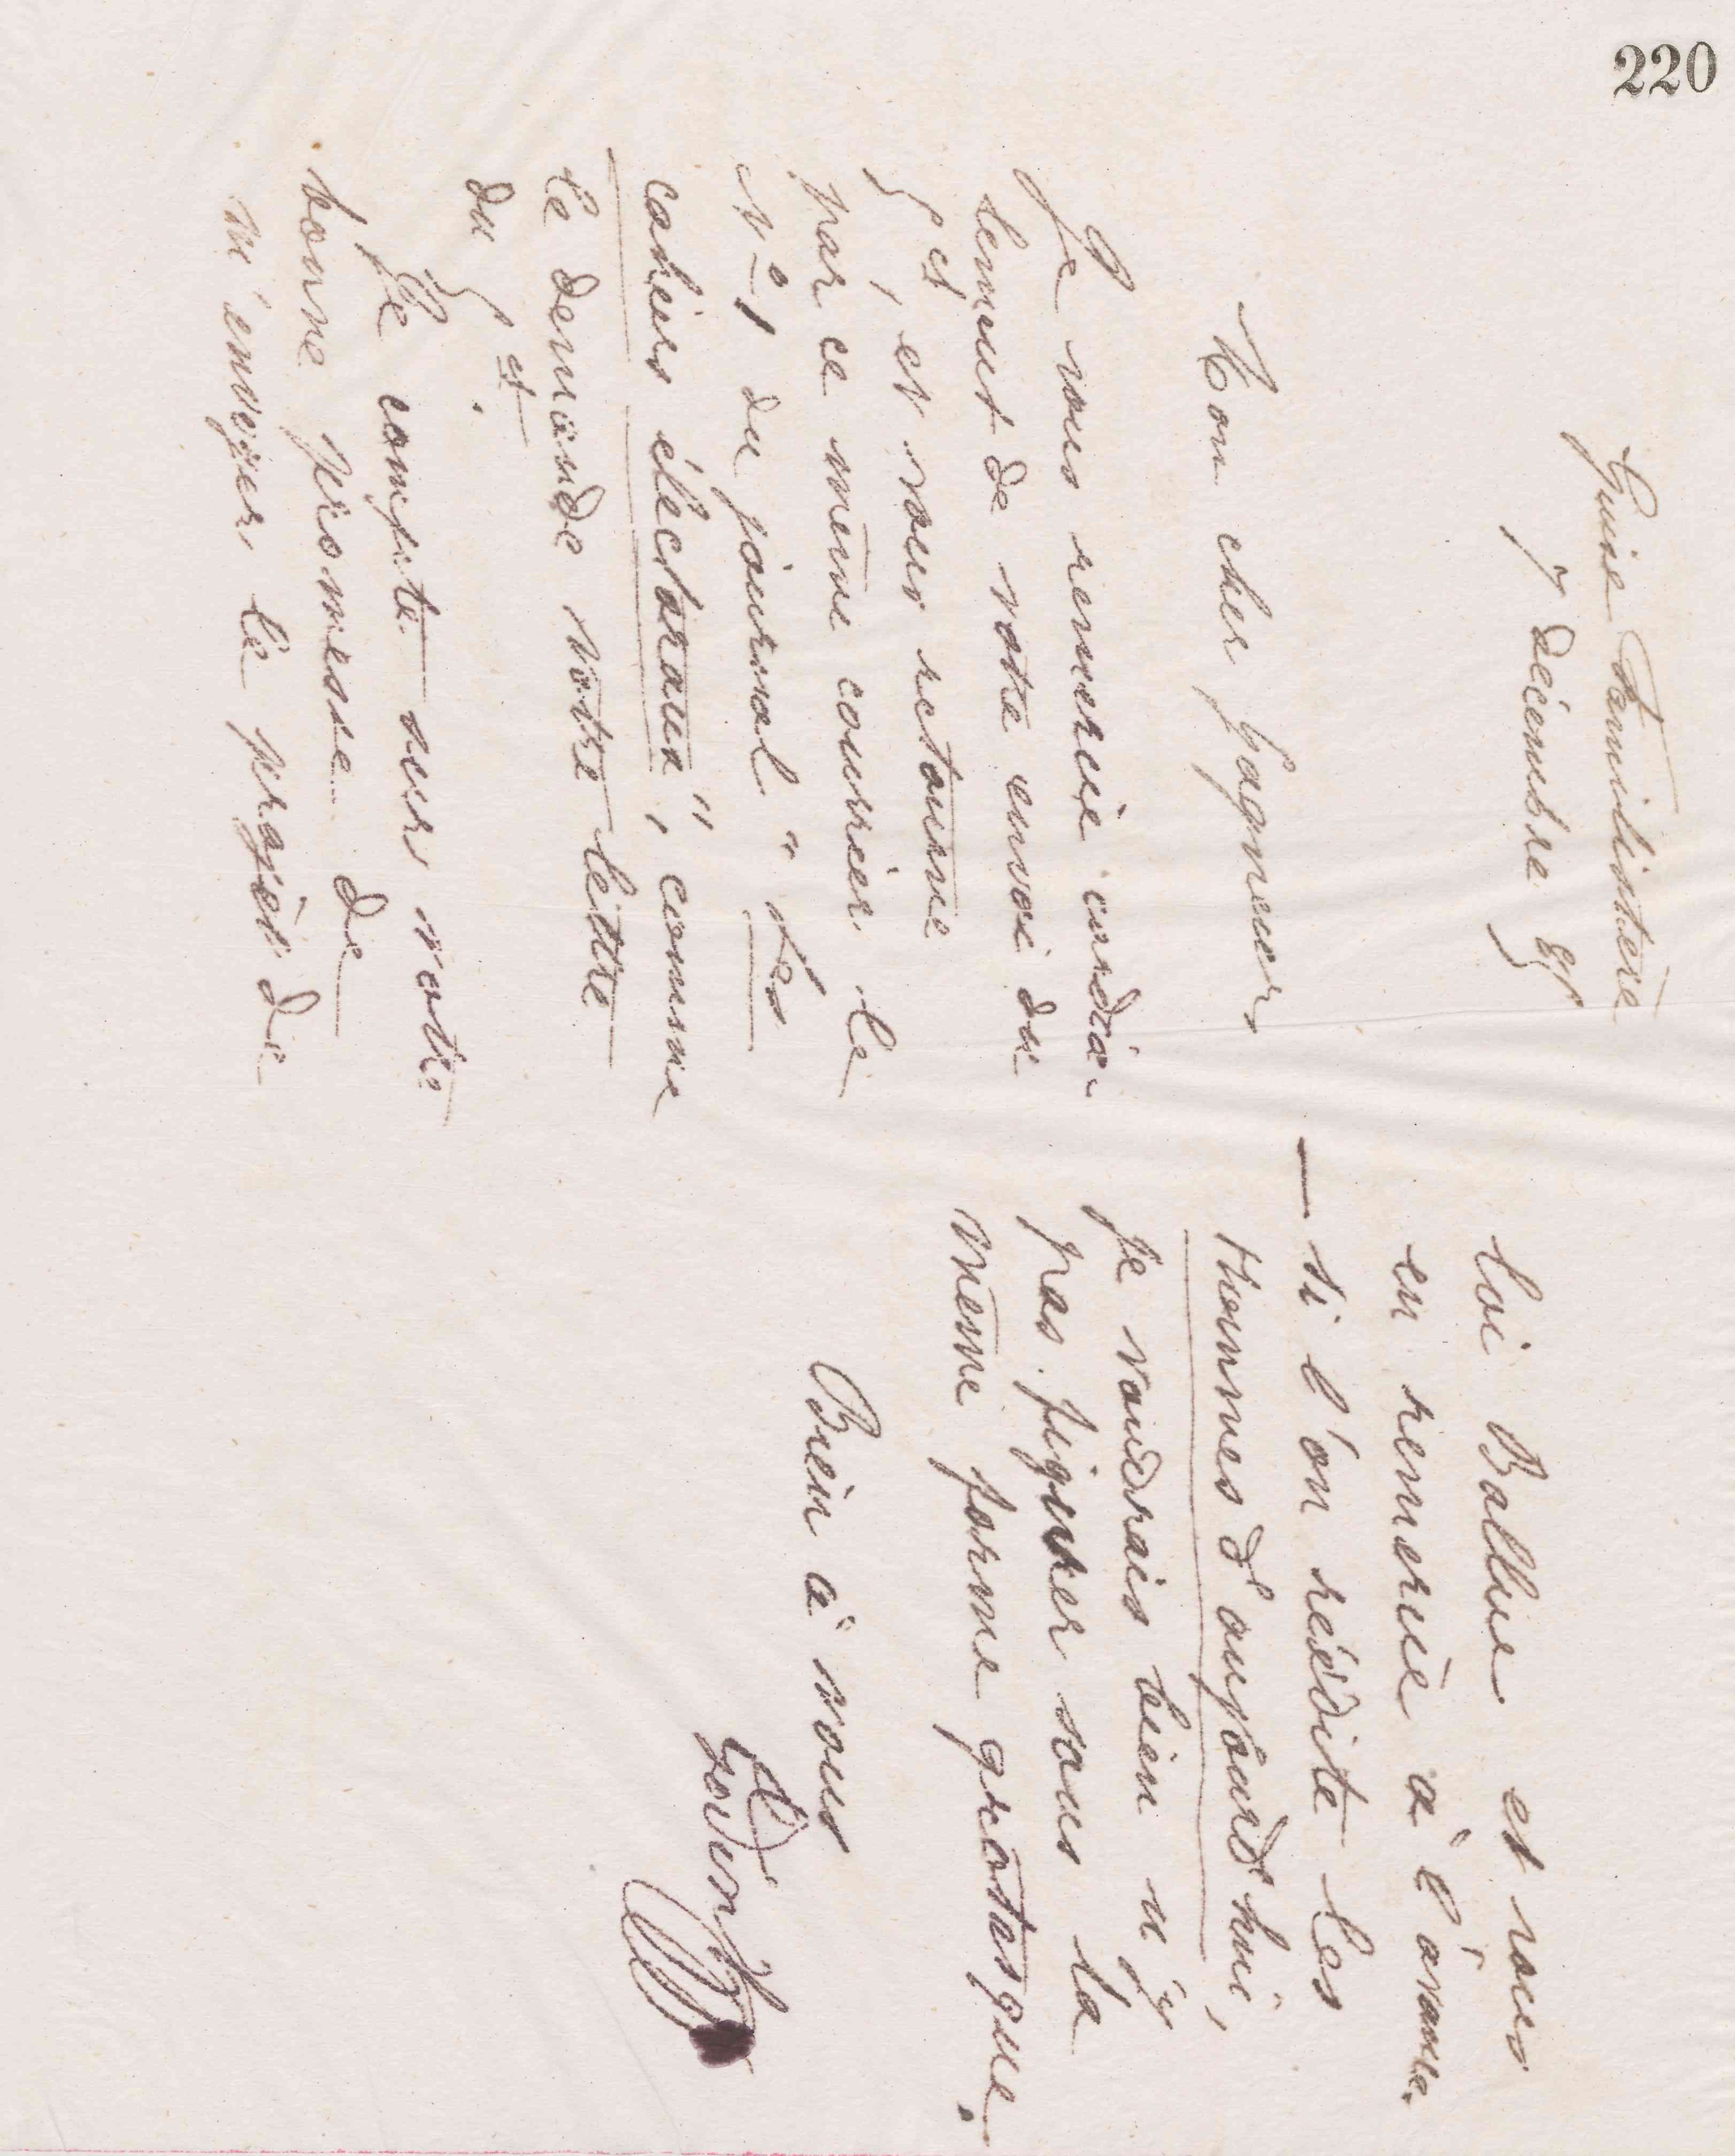 220
Guise Familistère
7 décembre 81
Mon cher Gagneur
Je vous remercie cordia-
lement de votre envoi du
5 ct, et vous retourne
par ce même courrier le
N° 1 du journal "Les
cahiers électoraux", comme
le demande votre lettre
du 5 ct.
Je compte sur votre
bonne promesse de
m'envoyer le projet de
loi Ballue et vous
en remercie à l'avance.
— Si l'on réédite Les
Hommes d'aujourd'hui,
je voudrais bien n'y
pas figurer sous la
même forme grotesque.
Bien à vous
Godin